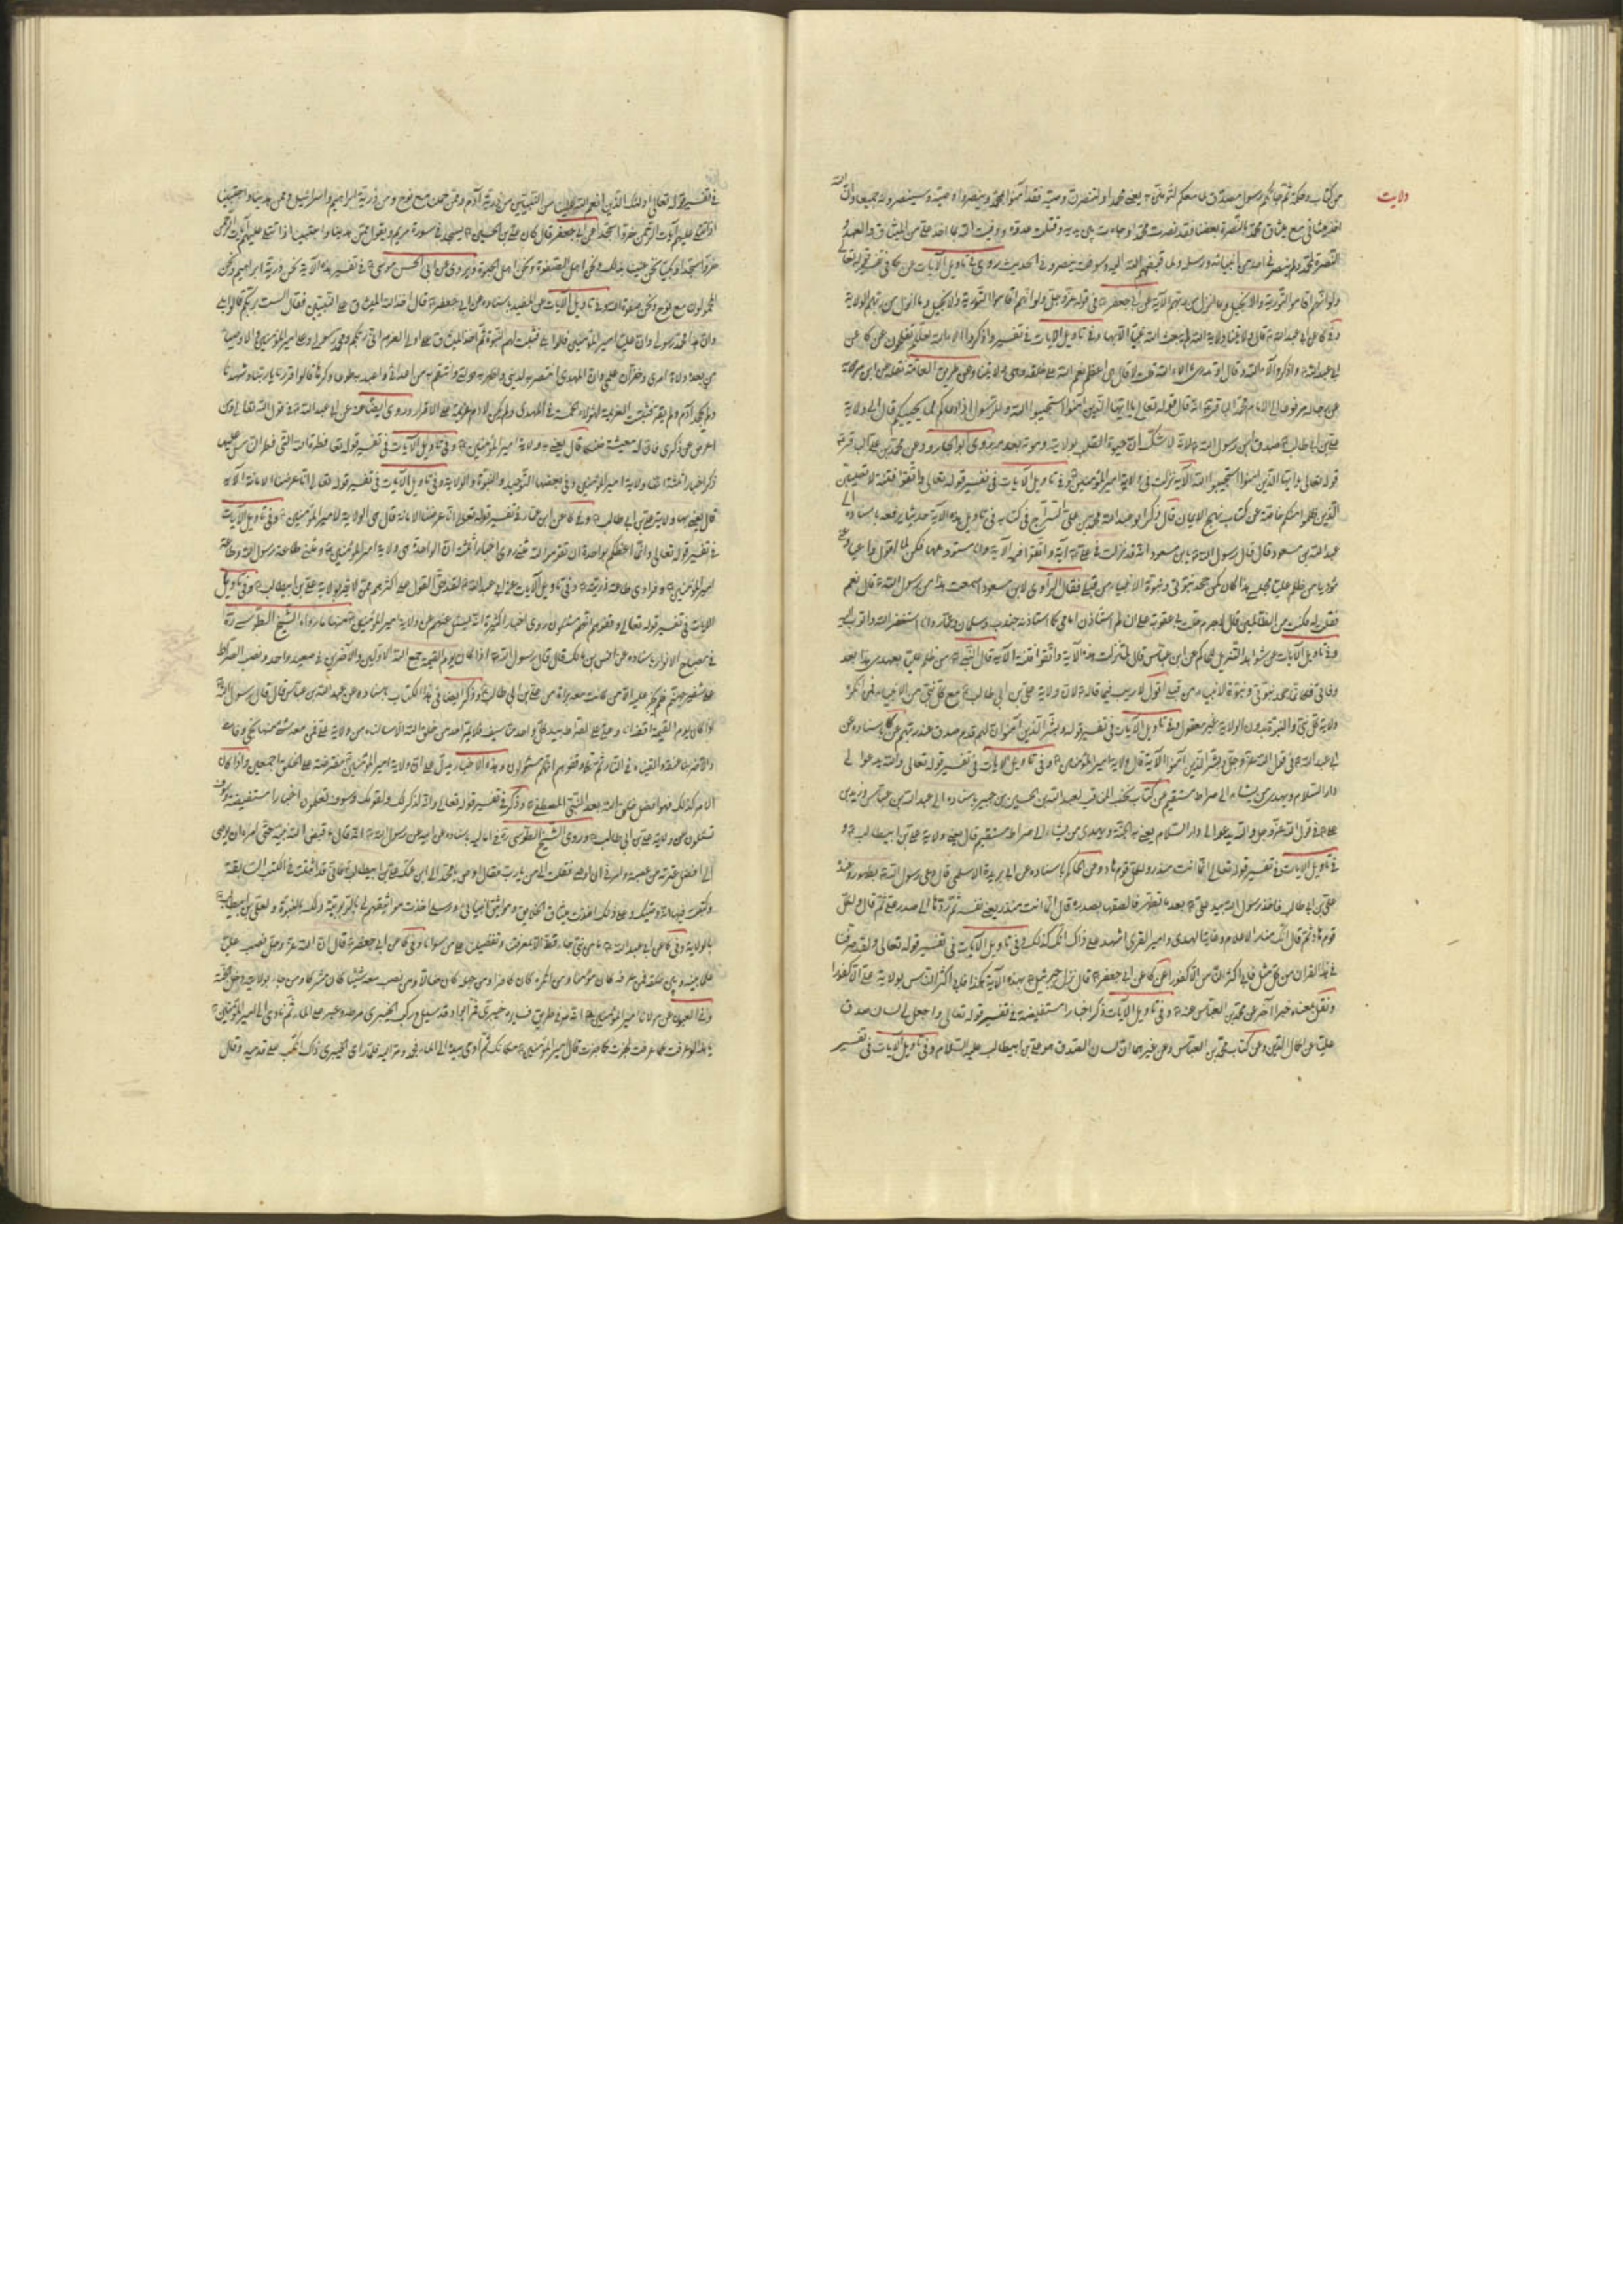 ولايت
من كتاب وحكمة ثم جاءكم رسول مصدق لما معكم لتؤمنن به يعني محمدا ولتنصرن وصيه فقد آمنوا بمحمد ولم ينصروا وصيه وسينصرونه جميعا وان الله
اخذ ميثاقي مع ميثاق محمد بالنصرة بعضنا فقد نصرت محمدا وجاهدت بين يديه وقتلت عدوه ووفيت الله بما اخذ علي من الميثاق والعهد و
النصرة لمحمد ولم ينصرني احد من انبيائه ورسله ولما قبضهم الله اليه وسوف ينصرونني الحديث روى في تاويل الآيات عن كا في تفسير قوله تعالى
ولو انهم اقاموا التورية والانجيل وما انزل من ربهم الآية عن ابي جعفر في قوله عز وجل ولو انهم اقاموا التورية والانجيل وما انزل من ربهم الولاية
وفي كا عن ابي عبد الله قال ولايتنا ولاية الله لم يبعث الله نبيا الا بها وفي تاويل الآيات في تفسير واذكروا آلاء الله لعلكم تفلحون عن كا عن
ابي عبد الله واذكروا آلاء الله قال اتدري ما آلاء الله قلت لا قال هي اعظم نعم الله على خلقه وهي ولايتنا وعن طريق العامة نقله عن ابن مردويه
عن رجاله مرفوعا الى الامام محمد الباقر انه قال قوله تعالى يا ايها الذين آمنوا استجيبوا الله وللرسول اذا دعاكم لما يحييكم قال الى ولاية
علي بن ابي طالب
قوله تعالى يا ايها الذين آمنوا استجيبوا الله الآية نزلت في ولاية امير المؤمنين وفي تاويل الآيات في تفسير قوله تعالى واتقوا فتنة لا تصيبن
الذين ظلموا منكم خاصة عن كتاب نهج الايمان قال ذكر ابو عبد الله محمد بن علي السراج في كتابه في تاويل هذه الآية حديثا يرفعه باسناده الى
عبد الله بن مسعود قال قال رسول الله يابن مسعود انه قد نزلت في علي آية واتقوا فتنة الآية وانا مستودعكها فكن لما اقول واعيا وعني
مؤديا من ظلم عليا مجلسي هذا كان كمن جحد نبوتي ونبوة الانبياء من قبلي فقال الراوي لابن مسعود اسمعت هذا من رسول الله قال نعم
فقلت له فكنت من الظالمين قال لا جرم حلت بي عقوبة علي اني لم استأذن امامي كما استأذنه جندب وسلمان وعمار وانا استغفر الله واتوب اليه
وفي تاويل الآيات عن شواهد التنزيل للحاكم عن ابن عباس قال لما نزلت هذه الآية واتقوا فتنة الآية قال النبي من ظلم عليا مقعدي هذا بعد
وفاتي فكانما جحد نبوتي ونبوة الانبياء من قبلي اقول لا ريب فيما قاله لان ولاية علي بن ابي طالب مع كل نبي من الانبياء فمن انكر
ولاية كل نبي والنبوة بدون الولاية غير معقول وفي تاويل الآيات في تفسير قوله وبشر الذين آمنوا ان لهم قدم صدق عند ربهم عن كا باسناده عن
ابي عبد الله في قول الله عز وجل وبشر الذين آمنوا الآية قال ولاية امير المؤمنين وفي تاويل الآيات في تفسير قوله تعالى والله يدعوا الى
دار السلام ويهدي من يشاء الى صراط مستقيم عن كتاب نخب المناقب لعبد الله بن الحسين بن جبير باسناده الى عبد الله بن عباس وزيد بن
علي في قول الله عز وجل والله يدعوا الى دار السلام يعني به الجنة ويهدي من يشاء الى صراط مستقيم قال يعني ولاية علي بن ابيطالب و
في تاويل الآيات في تفسير قوله تعالى انما انت منذر ولكل قوم هاد وعن الحاكم باسناده عن ابي بريدة الاسلمي قال دعى رسول الله بطهور وعنده
علي بن ابي طالب فاخذ رسول الله بيد علي بعد ما تطهر فالصقها بصدره قال انما انت منذر يعني نفسه ثم ردها الى صدر علي ثم قال ولكل
قوم هاد ثم قال انك منار الانام وغاية الهدى وامير القرى اشهد على ذلك انك كذلك وفي تاويل الآيات في تفسير قوله تعالى ولقد صرفنا
في هذا القران من كل مثل فابى اكثر الناس الا كفورا عن كا عن ابي جعفر قال نزل جبرئيل بهذه الآية هكذا فابى اكثر الناس بولاية علي الا كفورا
ونقل بمعناه خبرا آخر عن محمد بن العباس عنه وفي تاويل الآيات ذكر اخبارا مستفيضة في تفسير قوله تعالى واجعل لي لسان صدق
عليا عن كمال الدين وعن كتاب محمد بن العباس وعن غيرهما ان لسان الصدق هو علي بن ابيطالب عليه السلام وفي تاويل الآيات في تفسير
في تفسير قوله تعالى اولئك الذين انعم الله عليهم من النبيين من ذرية آدم وممن حملنا مع نوح ومن ذرية ابراهيم واسرائيل وممن هدينا واجتبينا
اذا تتلى عليهم آيات الرحمن خروا سجدا عن ابي جعفر قال كان علي بن الحسين يسجد في سورة مريم ويقول ممن هدينا واجتبينا اذا تتلى عليهم آيات الرحمن
خروا سجدا وبكيا نحن عنينا بذلك ونحن اهل الصفوة ونحن اهل الحبوة وروى عن ابي الحسن موسى في تفسير هذه الآية نحن ذرية ابراهيم ونحن
المحمولون مع نوح ونحن صفوة الله وفي تاويل الآيات عن المفيد باسناده عن ابي جعفر قال اخذ الله الميثاق على النبيين فقال الست بربكم قالوا بلى
وان هذا محمد رسولي وان عليا امير المؤمنين قالوا بلى فثبتت لهم النبوة ثم اخذ الميثاق على اولي العزم اني ربكم ومحمد رسولي وعلي امير المؤمنين والاوصياء
من بعده ولاة امري وخزان علمي وان المهدي انتصر به لديني واظهر به دولتي وانتقم به من اعدائي واعبد به طوعا وكرها قالوا اقررنا يا ربنا وشهدنا
ولم يجحد آدم ولم يقر فثبتت العزيمة لهؤلاء الخمسة في المهدي ولم يكن لادم عزيمة على الاقرار وروى ايضا عن ابي عبد الله في قول الله تعالى ومن
اعرض عن ذكري فان له معيشة ضنكا قال يعني به ولاية امير المؤمنين وفي تاويل الآيات في تفسير قوله تعالى فطرة الله التي فطر الناس عليها
ذكر اخبارا ولاية امير المؤمنين وفي بعضها التوحيد والنبوة والولاية وفي تاويل الآيات في تفسير قوله تعالى انا عرضنا الامانة الآية
قال يعني بها ولاية علي بن ابي طالب وفي كا عن ابن عمار في تفسير قوله تعالى انا عرضنا الامانة قال هي الولاية لامير المؤمنين وفي تاويل الآيات
في تفسير قوله تعالى وانما اعظكم بواحدة ان تقوموا لله مثنى روى اخبارا ان الواحدة هي ولاية امير المؤمنين ومثنى طاعة رسول الله وطاعة
امير المؤمنين وفرادى طاعة ذريته وفي تاويل الآيات عن ابي عبد الله لقد حق القول على اكثرهم ممن لا يقر بولاية علي بن ابيطالب وفي تاويل
الآيات في تفسير قوله تعالى وقفوهم انهم مسئولون روى اخبارا كثيرة انه يسئل عنهم عن ولاية امير المؤمنين فمنها ما رواه الشيخ الطوسي ره
في مصباح الانوار باسناده عن انس بن مالك قال قال رسول الله اذا كان يوم القيمة جمع الله الاولين والآخرين في صعيد واحد ونصب الصراط
على شفير جهنم فلم يجز عليه الا من كانت معه براة من علي بن ابي طالب وذكر ايضا في هذا الكتاب باسناده عن عبد الله بن عباس قال قال رسول الله
اذا كان يوم القيمة اقف انا وعلي على الصراط بيد كل واحد منا سيف فلا يمر احد من خلق الله الا سالناه من ولاية علي فمن معه شئ منها نجى وفاز
والا ضربنا عنقه والقيناه في النار ثم تلا وقفوهم انهم مسئولون وهذه الاخبار يدل على ان ولاية امير المؤمنين مفترضة على الخلق اجمعين واذا كان
الامر كذلك فهو افضل خلق الله بعد النبي المصطفى وذكر في تفسير قوله تعالى وانه لذكر لك ولقومك وسوف تعملون اخبارا مستفيضة سوف
تسئلون عن ولاية علي بن ابي طالب وروى الشيخ الطوسي ره في اماليه باسناده عن ابيه عن رسول الله انه قال ما قبض الله نبيه حتى امره ان يوصي
الى افضل عترته من عصبته وامرني ان اوصي فقلت الى من يا رب فقال اوص يا محمد الى ابن عمك علي بن ابيطالب فاني قد اثبته في الكتب السابقة
وكتبت فيها انه وصيك وعلى ذلك اخذت ميثاق الخلايق ومواثيق انبيائي ورسلي اخذت مواثيقهم لي بالربوبية ولك بالنبوة ولعلي بن ابيطالب
بالولاية وفي كا عن ابي عبد الله ما من نبي جاء قط الا بمعرفة حقنا وتفضيلنا على من سوانا وفي كا عن ابي جعفر قال ان الله عز وجل نصب عليا
علما بينه وبين خلقه فمن عرفه كان مؤمنا ومن انكره كان كافرا ومن جهله كان ضالا ومن نصب معه شيئا كان مشركا ومن جاء بولايته دخل الجنة
وفي العيون عن مولانا امير المؤمنين
يا هذا لو عرفت كما عرفت لجزت كما جزت قال امير المؤمنين مكانك ثم اومى بيده الى الماء فجمد ومر عليه فلما راى الخيبري ذلك اكب على قدميه وقال